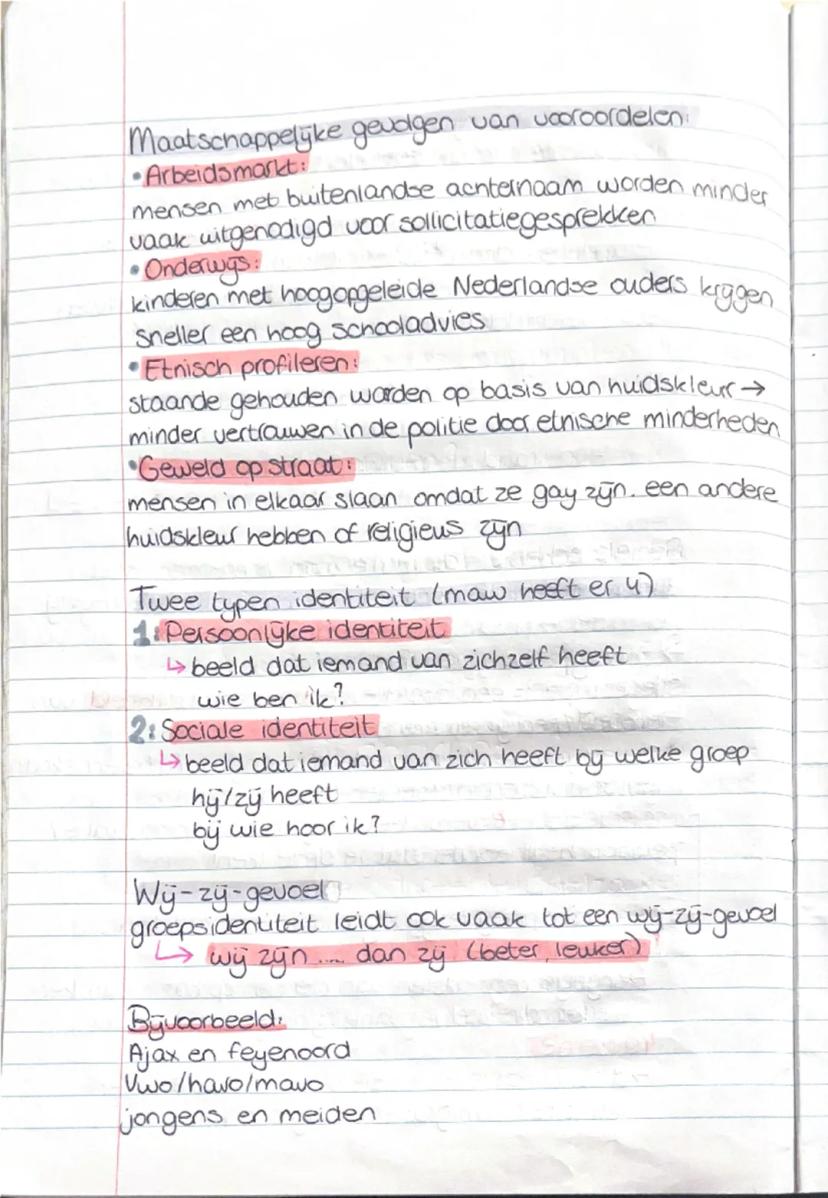 Maatschappelijke gevolgen van vooroordelen:
• Arbeidsmarkt:
mensen met buitenlandse achternaam worden minder
vaak uitgenodigd voor sollicitatiegesprekken
• Onderwijs:
kinderen met hoogopgeleide Nederlandse ouders krijgen
sneller een hoog schooladvies
• Etnisch profileren:
staande gehouden worden op basis van huidskleur →
minder vertrouwen in de politie door etnische minderheden
• Geweld op straat:
mensen in elkaar slaan omdat ze gay zijn, een andere
huidskleur hebben of religieus zijn
Twee typen identiteit (maw heeft er 4)
1: Persoonlijke identiteit
↳ beeld dat iemand van zichzelf heeft
wie ben ik?
2: Sociale identiteit
↳ beeld dat iemand van zich heeft bij welke groep
hij/zij heeft
bij wie hoor ik?
Wij-zij-gevoel
groepsidentiteit leidt ook vaak tot een wij-zij-gevoel
↳ wij zijn ..... dan zij (beter, leuker)
Bijvoorbeeld:
Ajax en feyenoord
Vwo/havo/mavo
jongens en meiden